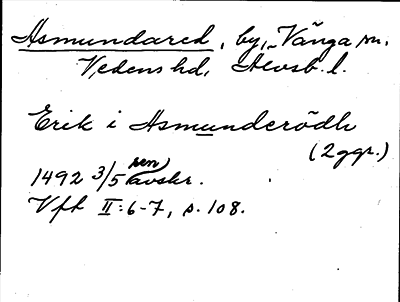 Asmundared, by, Vånga sn.
Vedens hd, Älvsb. l.
Erik i Asmunderödh
(2 ggr.)
1492 3/5 sen avskr.
Vft II:6-7, s. 108.